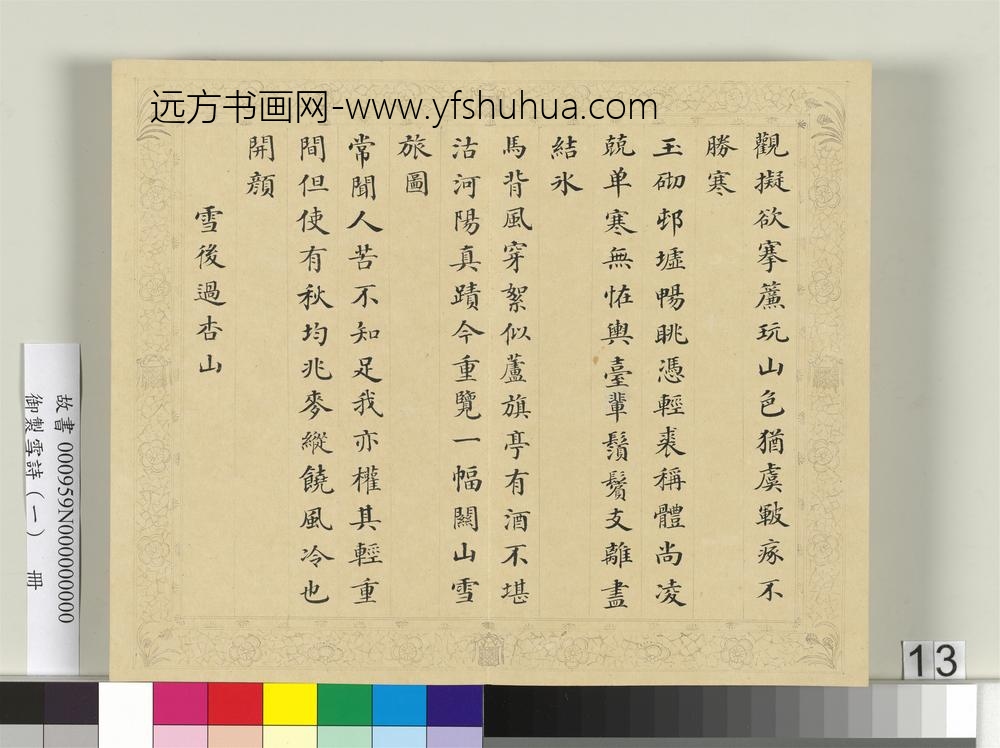 远方书画网-www.yfshuhua.com
觀擬欲搴簾玩山色猶虞皸瘃不
勝寒
玉砌邨墟暢眺憑輕裘稱體尚凌
兢单寒無恠輿臺輩鬚鬢支離盡
結氷
馬背風穿絮似蘆旗亭有酒不堪
沽河陽真蹟今重覽一幅關山雪
旅圖
常聞人苦不知足我亦權其輕重
間但使有秋均兆麥縱饒風冷也
開顔
雪後過杏山
故書 000959N000000000
御製雪詩(一) 冊
13